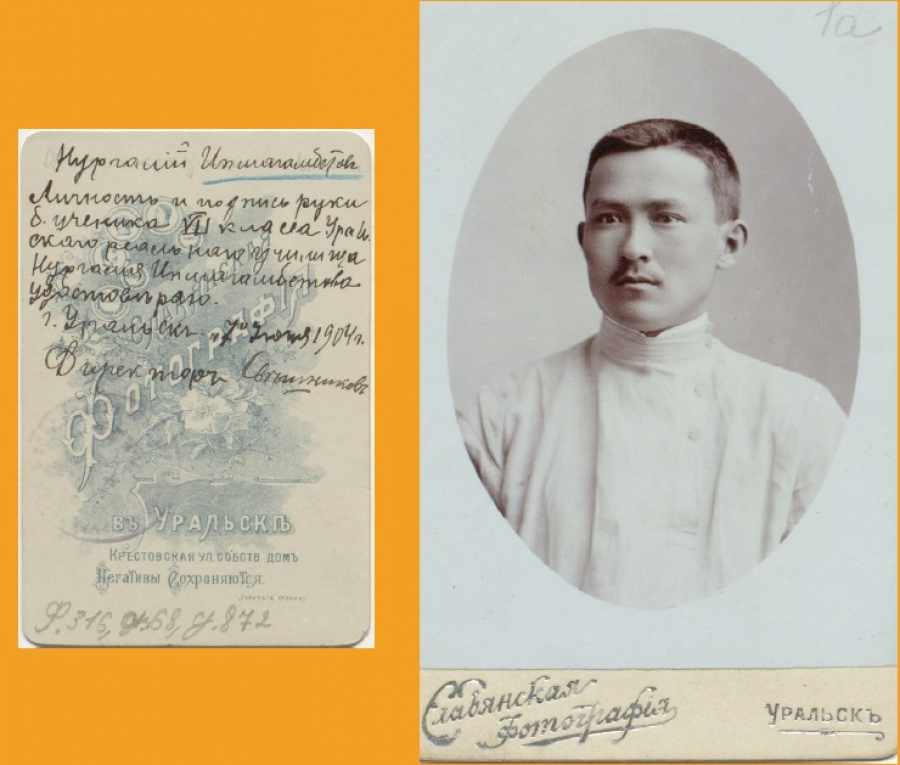 Нургалій Ишмагамбетовъ
Личность и подпись руки
б. ученика VII класса Ураль-
скаго реальнаго училища
Нургалія Ишмагамбетова
удостовѣряю.
г. Уральскъ 1904 г.
Директоръ Свѣшниковъ
Славянская
Фотографія
въ Уральскѣ
Крестовская ул. собств. домъ
Негативы Сохраняются.
Ф. 316,
872
1а
Славянская
Фотографія
Уральскъ